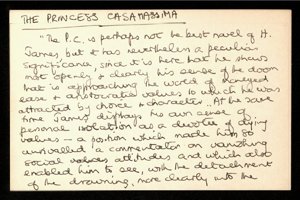 THE PRINCESS CASAMASSIMA
"The P.C. is perhaps not the best novel of H.
James but it has nevertheless a peculiar
significance, since it is here that he shows
most openly & clearly his sense of the doom
that is approaching the world of moneyed
ease & aristocratic values to which he was
attracted by choice & character. At the same
time James displays his own sense of
personal isolation as a devotee of dying
values – a position which made him so
unrivalled a commentator on vanishing
social values attitudes and which also
enabled him to see, with the detachment
of the drowning, more clearly into the